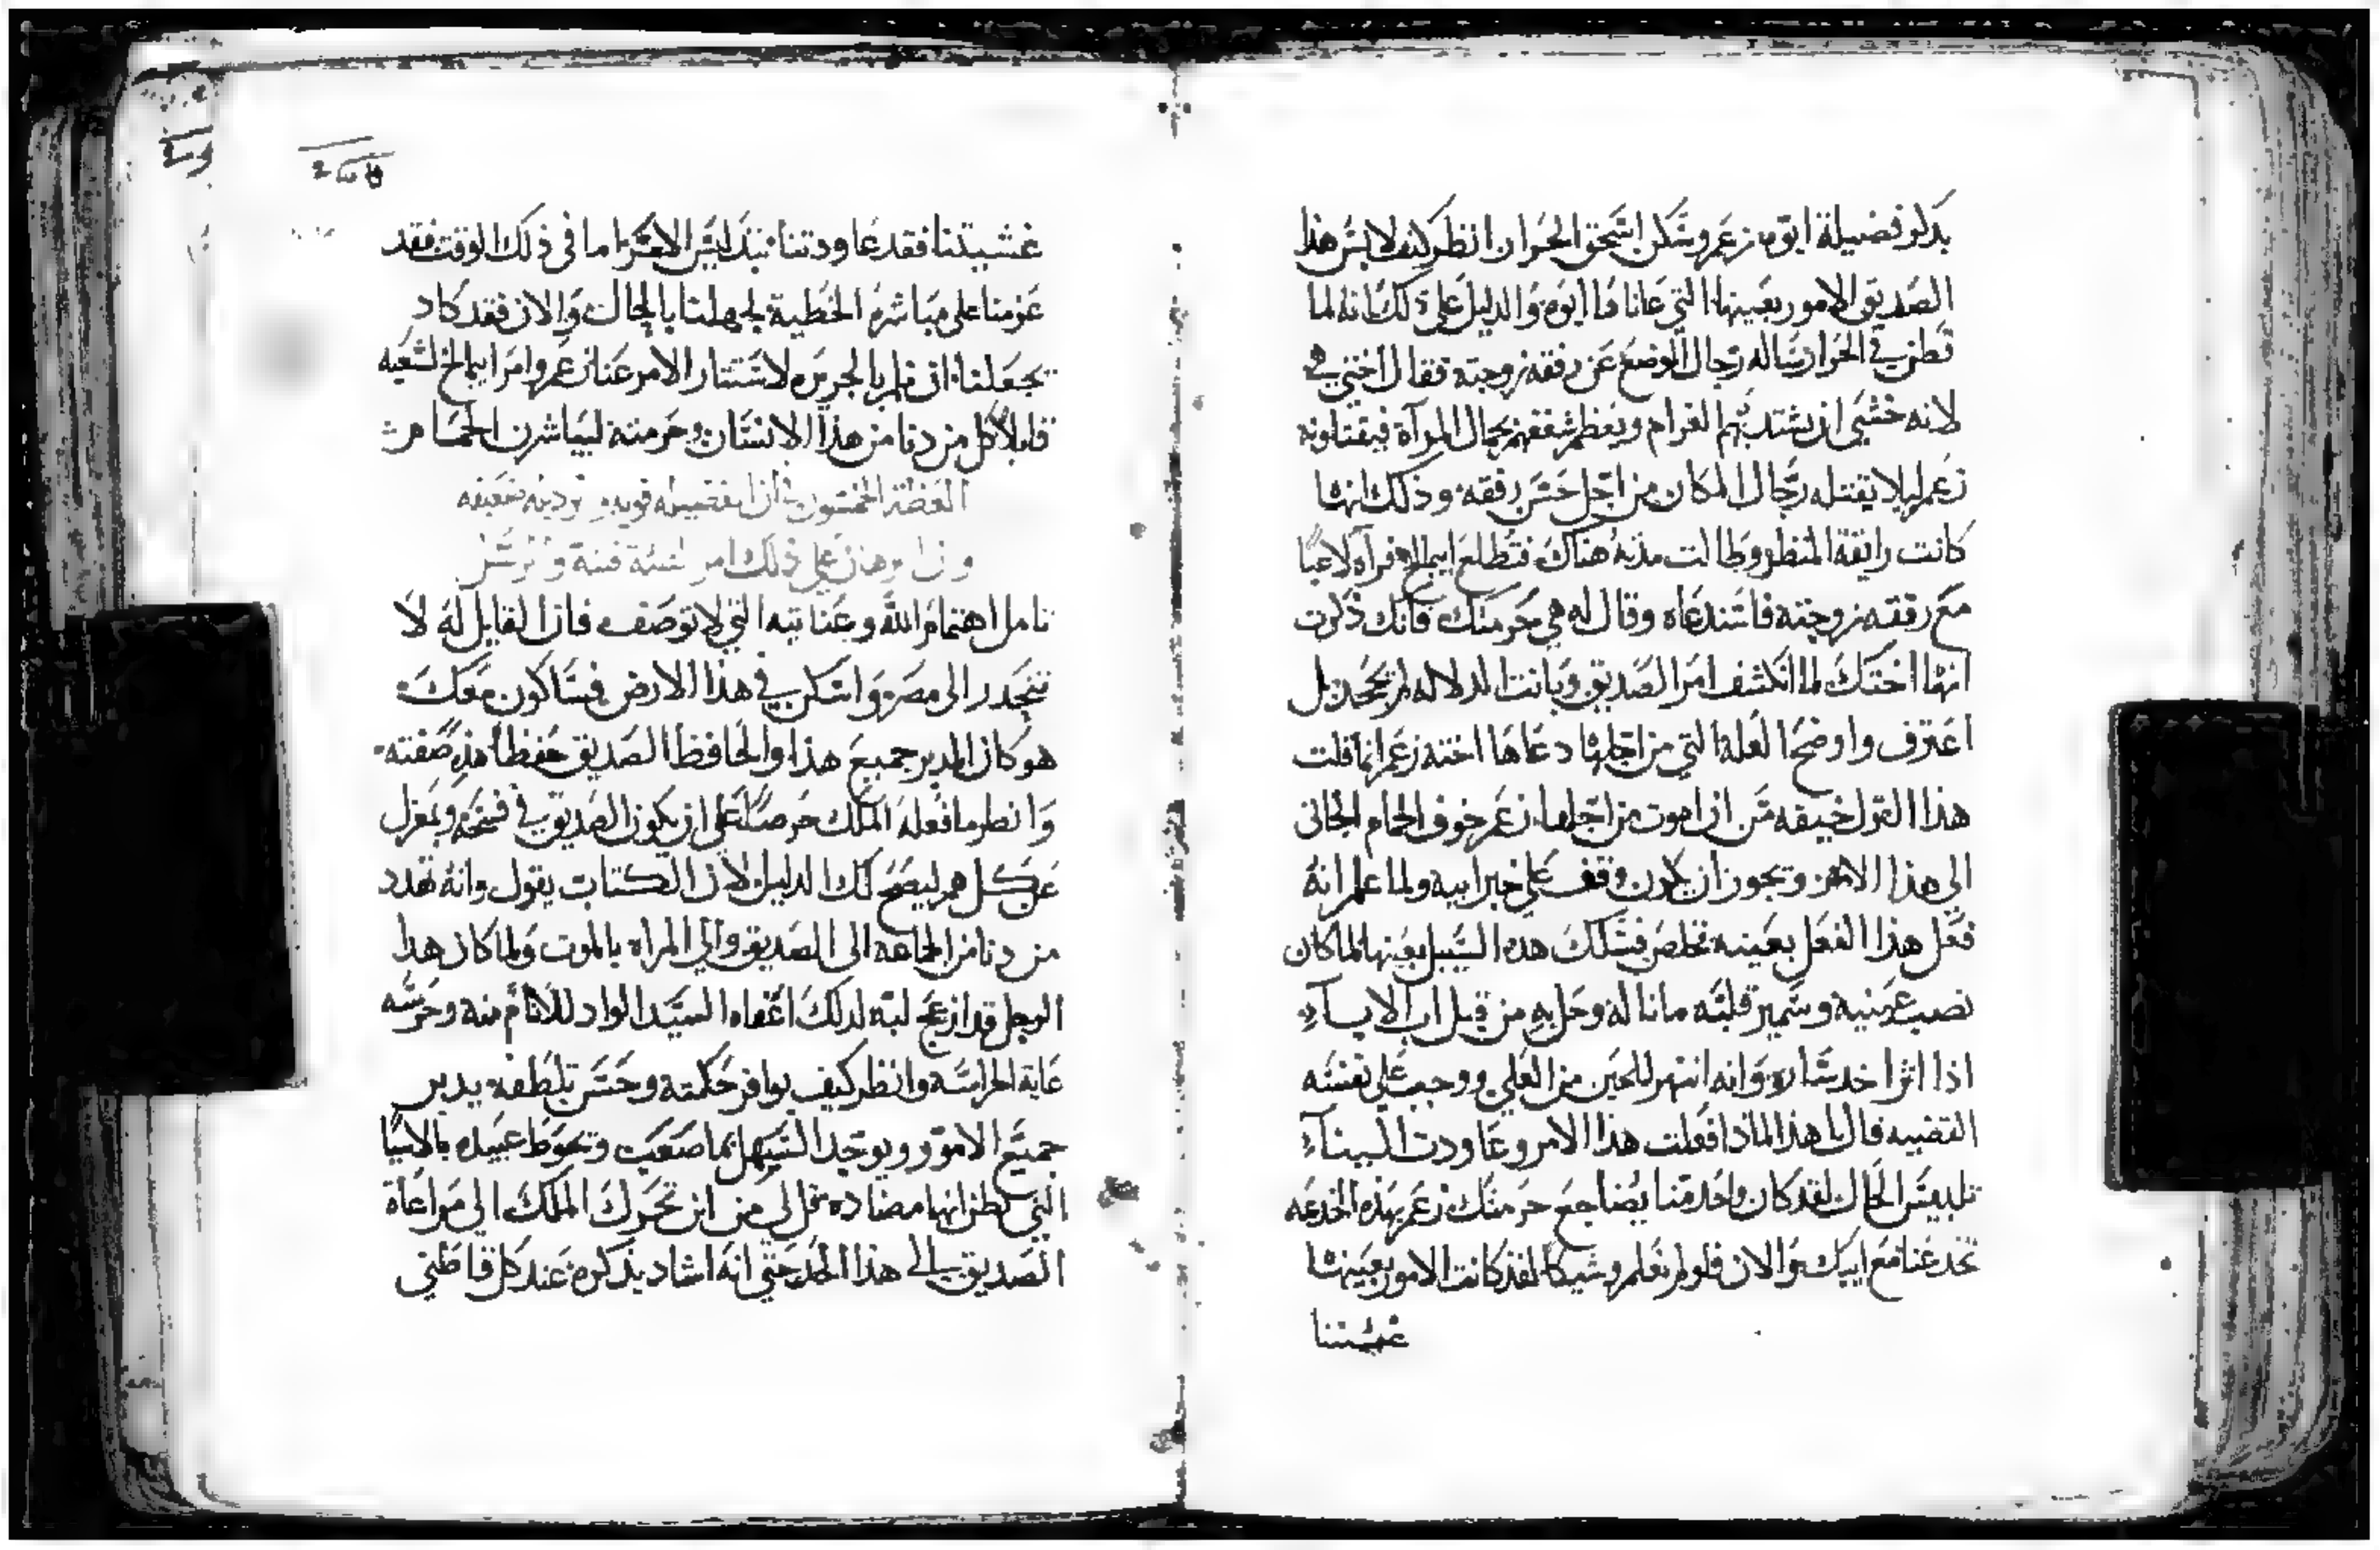 يذكر فضيلة ابوه زعم وسكن اسحق الجرار انظر كيف لابس هذا
الصديق الامور بعينها التي عاناها ابوه والدليل على ذلك انه لما
قطن في الجرار ساله رجال الوضع عن رفقه زوجته فقال اختي هي
لانه خشي ان يشتد بهم الغرام ويعظم شغفهم بجمال المراة فيقتلونه
زعم ليلا يقتله رجال المكان من اجل حسن رفقه وذلك انها
كانت رايقة المنظر وطالت مدته هناك فتطلع ابيمالخ فرآه لاعبا
مع رفقه زوجته فاستدعاه وقال له هي حرمتك فانك ذكرت
انها اختك لما انكشف امر الصديق وبانت الدلاله لم يجحد بل
اعترف واوضح العلة التي من اجلها دعاها اخته زعم انما قلت
هذا القول خيفه من ان اموت من اجلها زعم خوف الحمام الجاني
الى هذا الامر ويجوز ان يكون وقف على خبر ابيه ولما علم انه
فعل هذا الفعل بعينه تخلص فسلك هذه السبيل بعينها لما كان
نصب عينيه وسمير قلبه ما ناله وحل به من قبل اب الاباء
اذا اثرا خد ساره وانه انتهر للحين من العلى ووجب على نفسه
القضيه قال يا هذا لماذا فعلت هذا الامر وعاودت البيناء
تلبيس الحال لقد كان واحد منا يضاجع حرمتك زعم بهذه الخدعه
تخدعنا مع ابيك والان فلو لم نعلم وشيكا لقد كانت الامور بعينها
غشيتنا
غشيتنا فقد عاودتنا بتدليس الامر اما في ذلك الوقت فقد
عزمنا على مباشرة الخطية لجهلنا بالحال والان فقد كاد
يجعلنا ان نلم بالجريره لاستتار الامر عنا زعم وامر ابيمالخ لشعبه
قايلا كل من دنا من هذا الانسان وحرمته ليباشرن الحمام
العظة الخمسون في ان الفضيله قويه والرديه ضعيفه
وان برهان على ذلك امر
تامل اهتمام الله وعنايته التي لا توصف فان القايل له لا
تنحدر الى مصر واسكن في هذا الارض فساكون معك
هو كان المدبر جميع هذا والحافظ الصديق حفظا هذه صفته
وانظر ما فعله الملك حرصا على ان يكون الصديق في فسحة وبمعزل
عن كل هم ليصح لك الدليل لان الكتاب يقول وانه تهدد
من دنا من الجماعه الى الصديق والى المراه بالموت ولما كان هذا
الوجل قد ازعج لبه لذلك اعفاه السيد الواد للانام منه وحرسه
غاية الحراسه وانظر كيف بوافر حكمته وحسن تلطفه يدبر
جميع الامور ويوجد السهل مما صعب ويحوط عبيده بالاشيا
التي تظن انها مضاده قل لي من اين تحرك الملك الى مراعاة
الصديق الى هذا الحد حتى انه اشاد بذكره عند كل قاطني